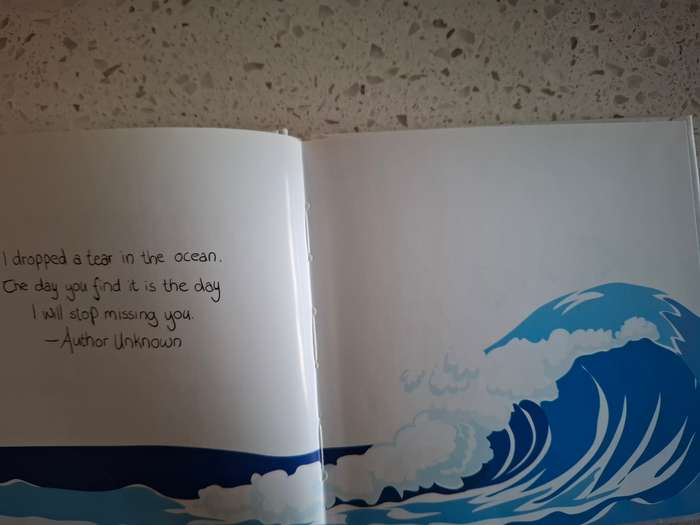 I dropped a tear in the ocean.
The day you find it is the day
I will stop missing you.
—Author Unknown